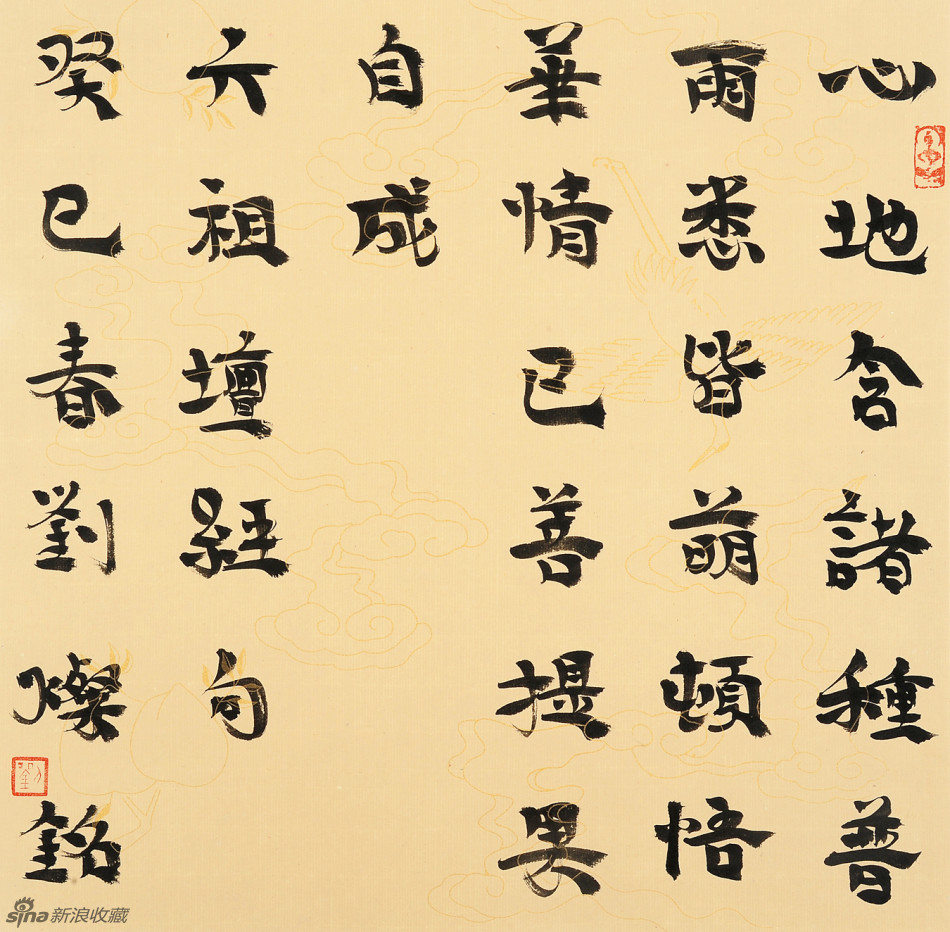 心地含諸種普
雨悉皆萌頓悟
華情已菩提果
自成
六祖壇經句
癸巳春劉燦銘
sina 新浪收藏